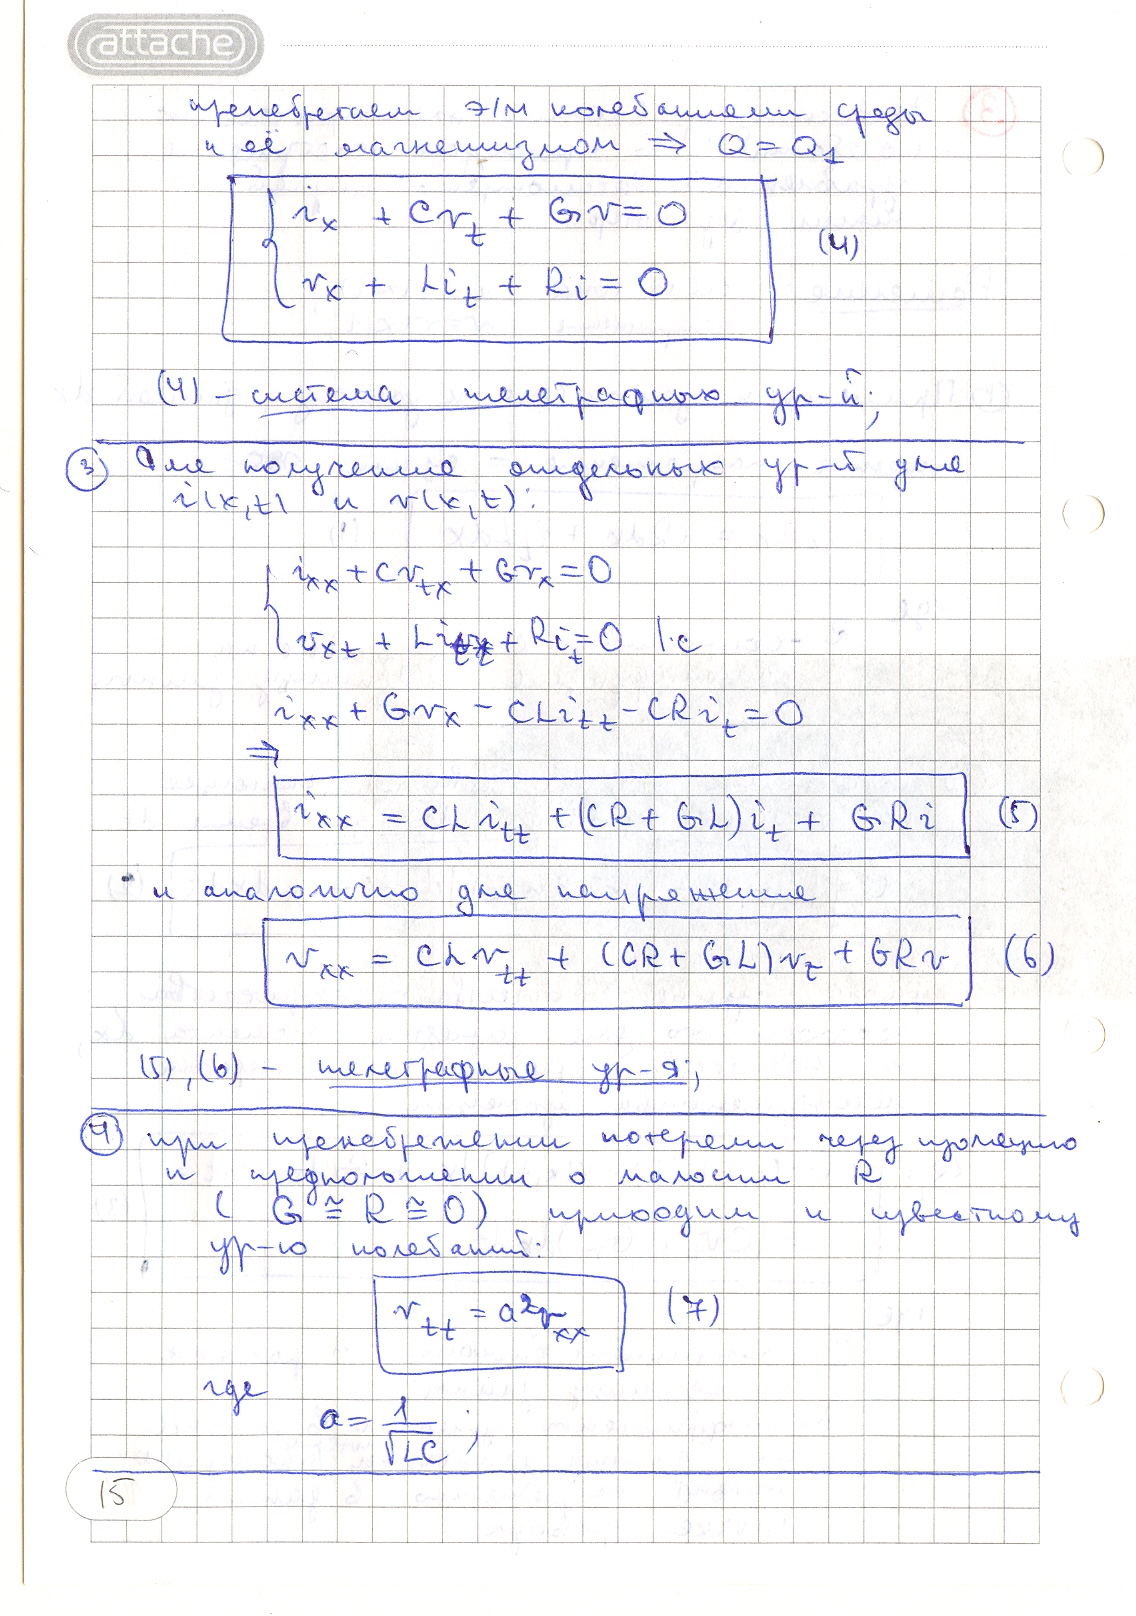 attache
пренебрегаем э/м колебаниями среды
и её магнетизмом ⇒ Q = Q₁
i_x + Cv_t + Gv = 0
(4)
v_x + Li_t + Ri = 0
(4) - система телеграфных ур-й;
③ Для получения отдельных ур-й для
i(x,t) и v(x,t):
i_xx + Cv_tx + Gv_x = 0
v_xt + Li_tt + Ri_t = 0 |·C
i_xx + Gv_x - CLi_tt - CRi_t = 0
⇒
i_xx = CLi_tt + (CR + GL)i_t + GRi (5)
и аналогично для напряжения
v_xx = CLv_tt + (CR + GL)v_t + GRv (6)
(5), (6) - телеграфные ур-я;
④ при пренебрежении потерями через изоляцию
и предположении о малости R
(G ≅ R ≅ 0) приходим к известному
ур-ю колебаний:
v_tt = a²v_xx (7)
где
a = 1/√LC ;
15